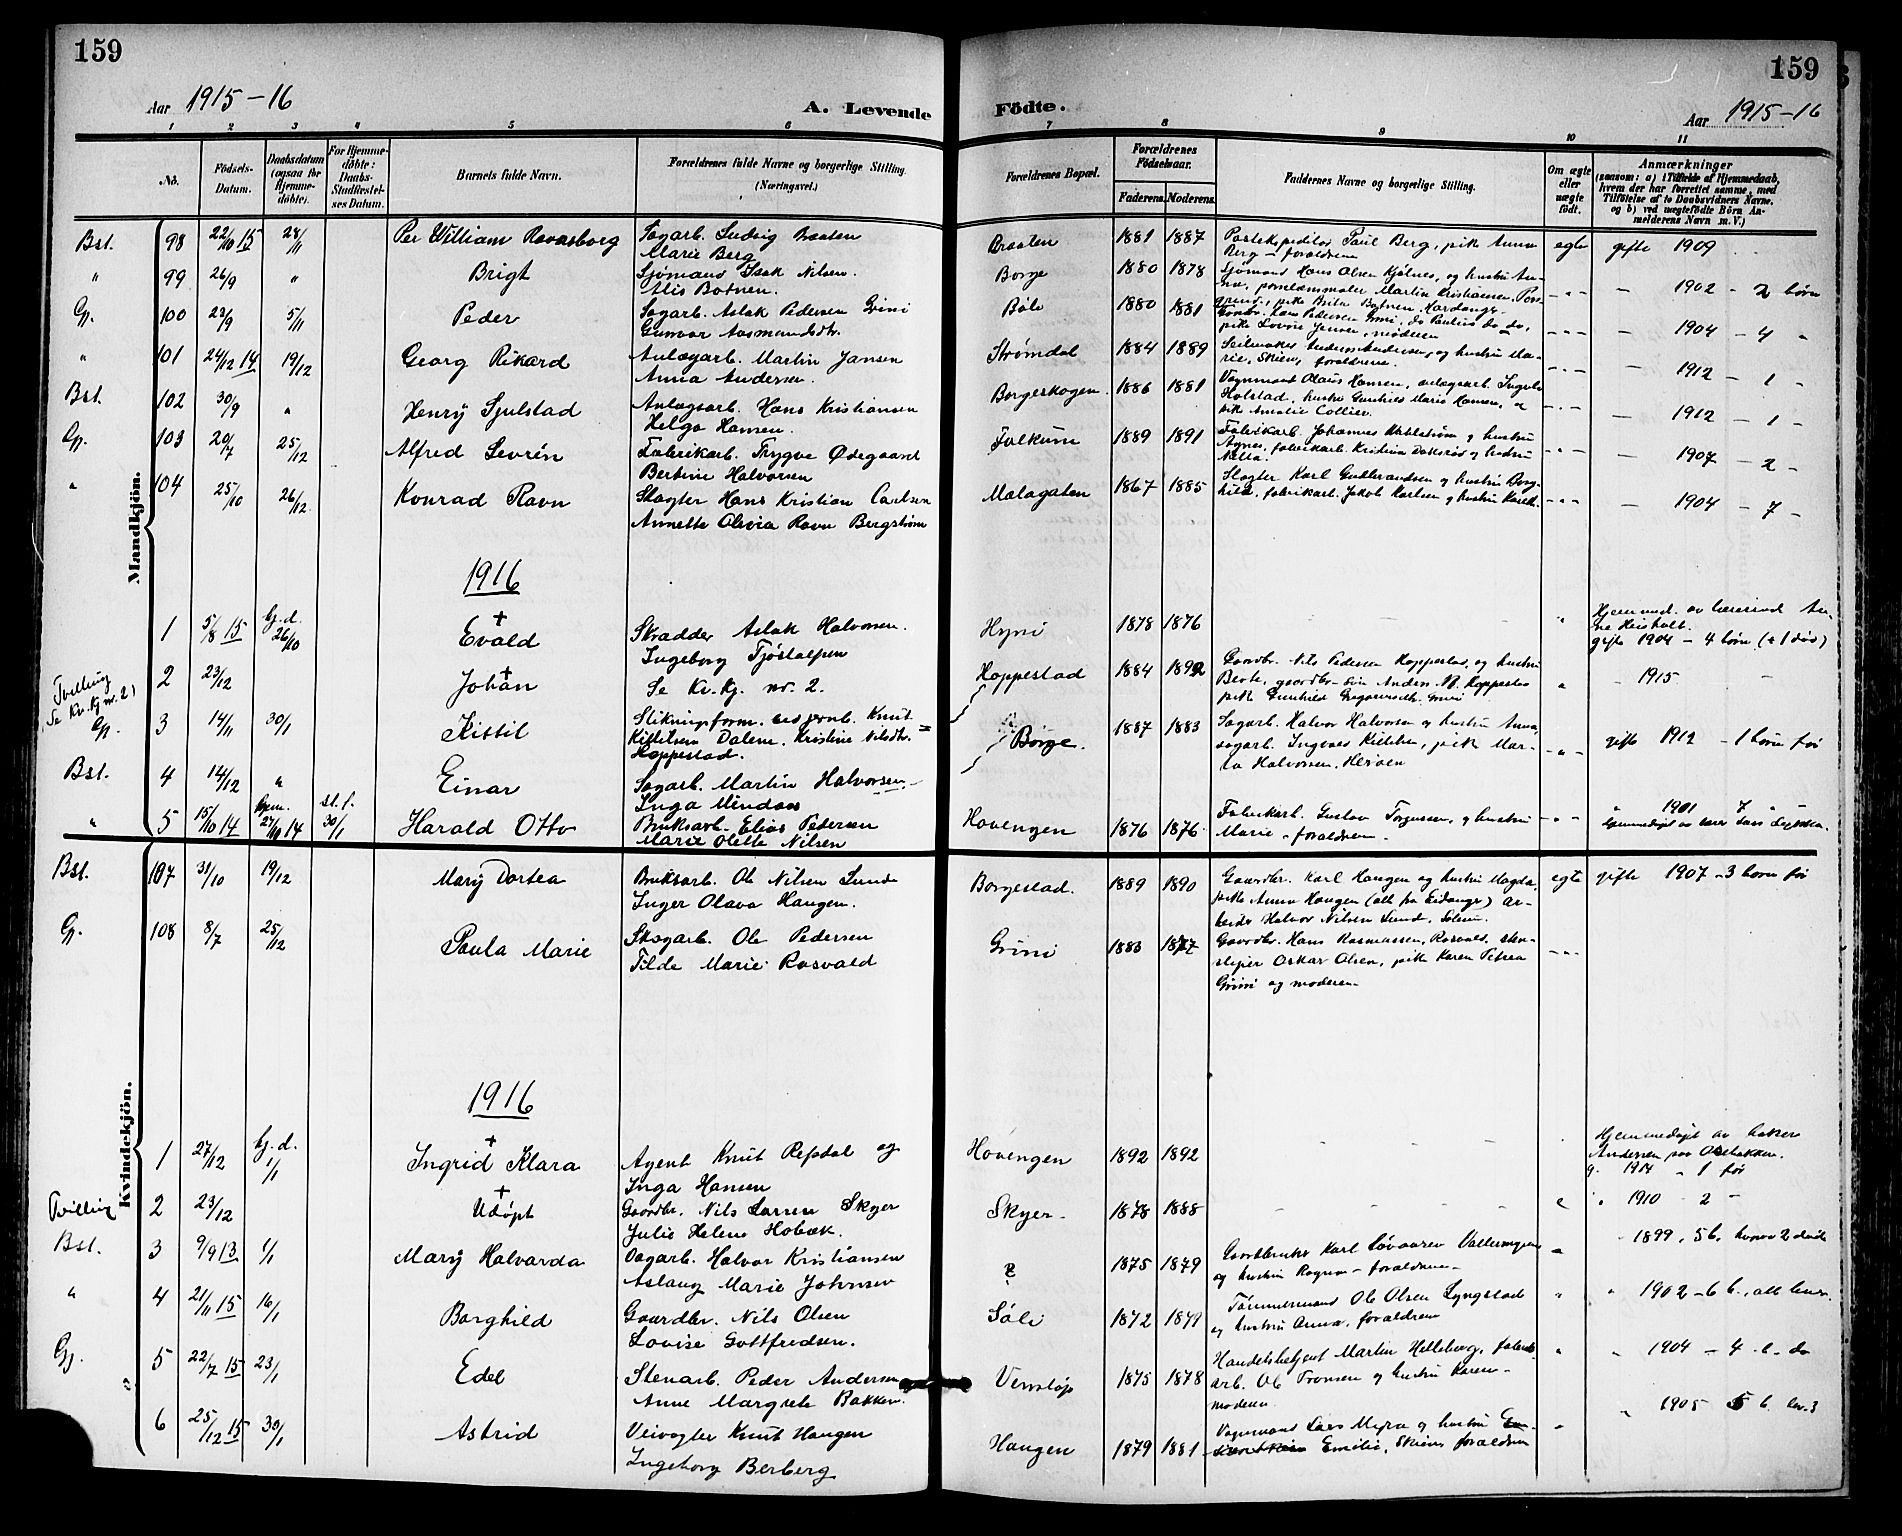 159
159
Aar 1915-16
A. Levende
Födte.
Aar 1915-16
1 2 3 4 5 6 7 8 9 10 11
No.
Födsels-Datum.
Daabsdatum (ogsaa for Hjemme-döbte).
For Hjemme-döbte: Daabs-Stadfæstel-ses Datum.
Barnets fulde Navn.
Forældrenes fulde Navne og borgerlige Stilling. (Næringsvei.)
Forældrenes Bopæl.
Forældrenes Födselsaar.
Faderens. Moderens.
Faddernes Navne og borgerlige Stilling.
Om ægte eller uægte födt.
Anmærkninger
(saasom: a) i Tilfælde af Hjemmedaab,
hvem der har forrettet samme, med
Tilföielse af to Daabsvidners Navne.
og b) ved uægtefödte Börn An-
melderens Navn m. V.)
Mandkjön.
Bst. 98 22/10 15 28/11 Per William Ravnsborg Sagarb. Ludvig Braaten
Marie Berg Braaten 1881 1887 Postekspeditør Paul Berg, pike Anna
Berg - forældrene egte gifte 1909
" 99 26/9 " Brigt Sjömand Isak Nilsen.
Alis Botnen. Borge 1880 1878 Sjømand Hans Olsen Kjølnes, og hustru
porselænsmaler Martin Kristiansen, - " - 1902 - 2 børn
Gj. 100 23/9 5/11 Peder Sagarb. Aslak Pedersen Grini
Gunnar Aasmundsdtr. Bøle 1880 1881 - " - 1904 - 4 "
" 101 24/12 14 19/12 Georg Rikard Anlægarb. Martin Jansen
Anna Andersen. Strømdal 1884 1889 Seilmaker Anders Andersen, og hustru Ma-
rie, Skien, forældrene. - " - 1912 - 1 "
Bst. 102 30/9 " Henry Sjulstad Anlægsarb. Hans Kristiansen
Helga Hansen. Borgeskogen 1886 1881 Vognmand Olaus Hansen, anlægsarb.
hustru Gunhild Marie Hansen, og
pik Amalie Collier. - " - 1912 - 1 -
Gj. 103 20/7 25/12 Alfred Sevrén Fabrikarb. Trygve Ødegaard
Bertine Halvorsen Falkum 1889 1891 Fabrikarb. Johannes og hustru
Agnes, fabrikarb. Kristian og hustru - " - 1907 - 2 -
" 104 25/10 26/12 Konrad Ravn Slagter Hans Kristian Carlsen
Annette Olivia Ravn Bergstrøm Malagaten 1867 1885 Slagter Karl Gulbrandsen og hustru Borg-
hild, fabrikarb. Jakob Karlsen og hustru - " - 1904 - 7 -
1916
1 5/8 15 hj. d. 26/10 Evald Skrædder Aslak Halvorsen.
Ingeborg Hyni 1878 1876 - - " Hjemmed. av lærerinde An-
ne
gifte 1904 - 4 børn (+ 1 død)
Tvilling
Se Kv.kj. nr. 2)
2 23/12 Johan Se Kv. kj. nr. 2. Hoppestad 1884 1892 Gaardbr. Nils Pedersen Hoppestad, og hustru
Berte, gaardbr. søn Anders N. Hoppestad
pik Gunhild " - 1915 -
Gj. 3 14/11 30/1 Kittil Knut
Kittilsen Dalene. Kristine Nilsdtr.
Hoppestad. Borge. 1887 1883 Sagarb. Halvor Halvorsen og hustru Anna,
sagarb. Ingvald Kittilsen, pik Mar-
ta Halvorsen, - " - gifte 1912 - 1 børn før
Bst. 4 14/12 " Einar Sagarb. Martin Halvorsen
Inga
" 5 15/10 14 hjem. 27/10 14 st. f. 30/1 Harald Otto Bruksarb. Elias Pedersen
Marie Olette Nilsen Hovengen 1876 1876 Fabrikarb. Gustav Torgersen, og hustru
Marie - forældrene - - " - 1901 7
Hjemmedøpt av
Kvindekjön.
Bst. 107 31/10 19/12 Mary Dortea Bruksarb. Ole Nilsen Lunde
Inger Olava Haugen. Borgestad. 1889 1890 Gaardbr. Karl Haugen og hustru Magda,
pike Anna Haugen (alle fra Eidanger) ar-
beider Halvor Nilsen Lund, Solum. egte gifte 1907 - 3 børn før
Gj. 108 8/7 25/12 Paula Marie Skogarb. Ole Pedersen
Tilde Marie Rosvald Grini 1883 1877 Gaardbr. Hans Rasmussen, Rosvald, sten-
sliper Oskar Olsen, pik Karen Petrea
Grini og moderen - - " -
1916
1 27/12 hj. d. 1/1 Ingrid Klara Agent Knut Repdal og
Inga Hansen Hovengen 1892 1892 - - - Hjemmedøpt av baker
Andersen paa
g. 1914 " 1 før
Tvilling 2 23/12 Udøpt Gaardbr. Nils Larsen Skyer
Julie Helene Hobæk. Skyer - 1878 1888 - - - " " 1910 - 2 -
Bst. 3 9/9 13 1/1 Mary Halvarda Sagarb. Halvor Kristiansen
Aslaug Marie Johnsen 1875 1879 Gaardbruker Karl
og hustru Ragna - forældrene - " 1899, 5 b. hvorav 2 døde
" 4 21/11 15 16/1 Borghild Gaardbr. Nils Olsen
Lovise Gottfredsen. Søli 1872 1879 Tømmermand Ole Olsen Lyngstad
og hustru Anna, forældrene " " 1902 - 6 b., alle lever.
Gj. 5 22/7 15 23/1 Edel Stenarb. Peder Andersen
Anne Margrete Bakken Venstøp 1875 1878 Handelsbetjent Martin Helleberg, fabrik-
arb. Ole Tronsen og hustru Karen -
moderen. " " 1904 - 4 b. do
" 6 25/12 15 30/1 Astrid Veivogter Knut Haugen
Ingeborg Berberg Haugen 1879 1881 Vognmand Lars Myra og hustru
Emilie, Skiens forældrene " " 1905 5 b. lev. 3